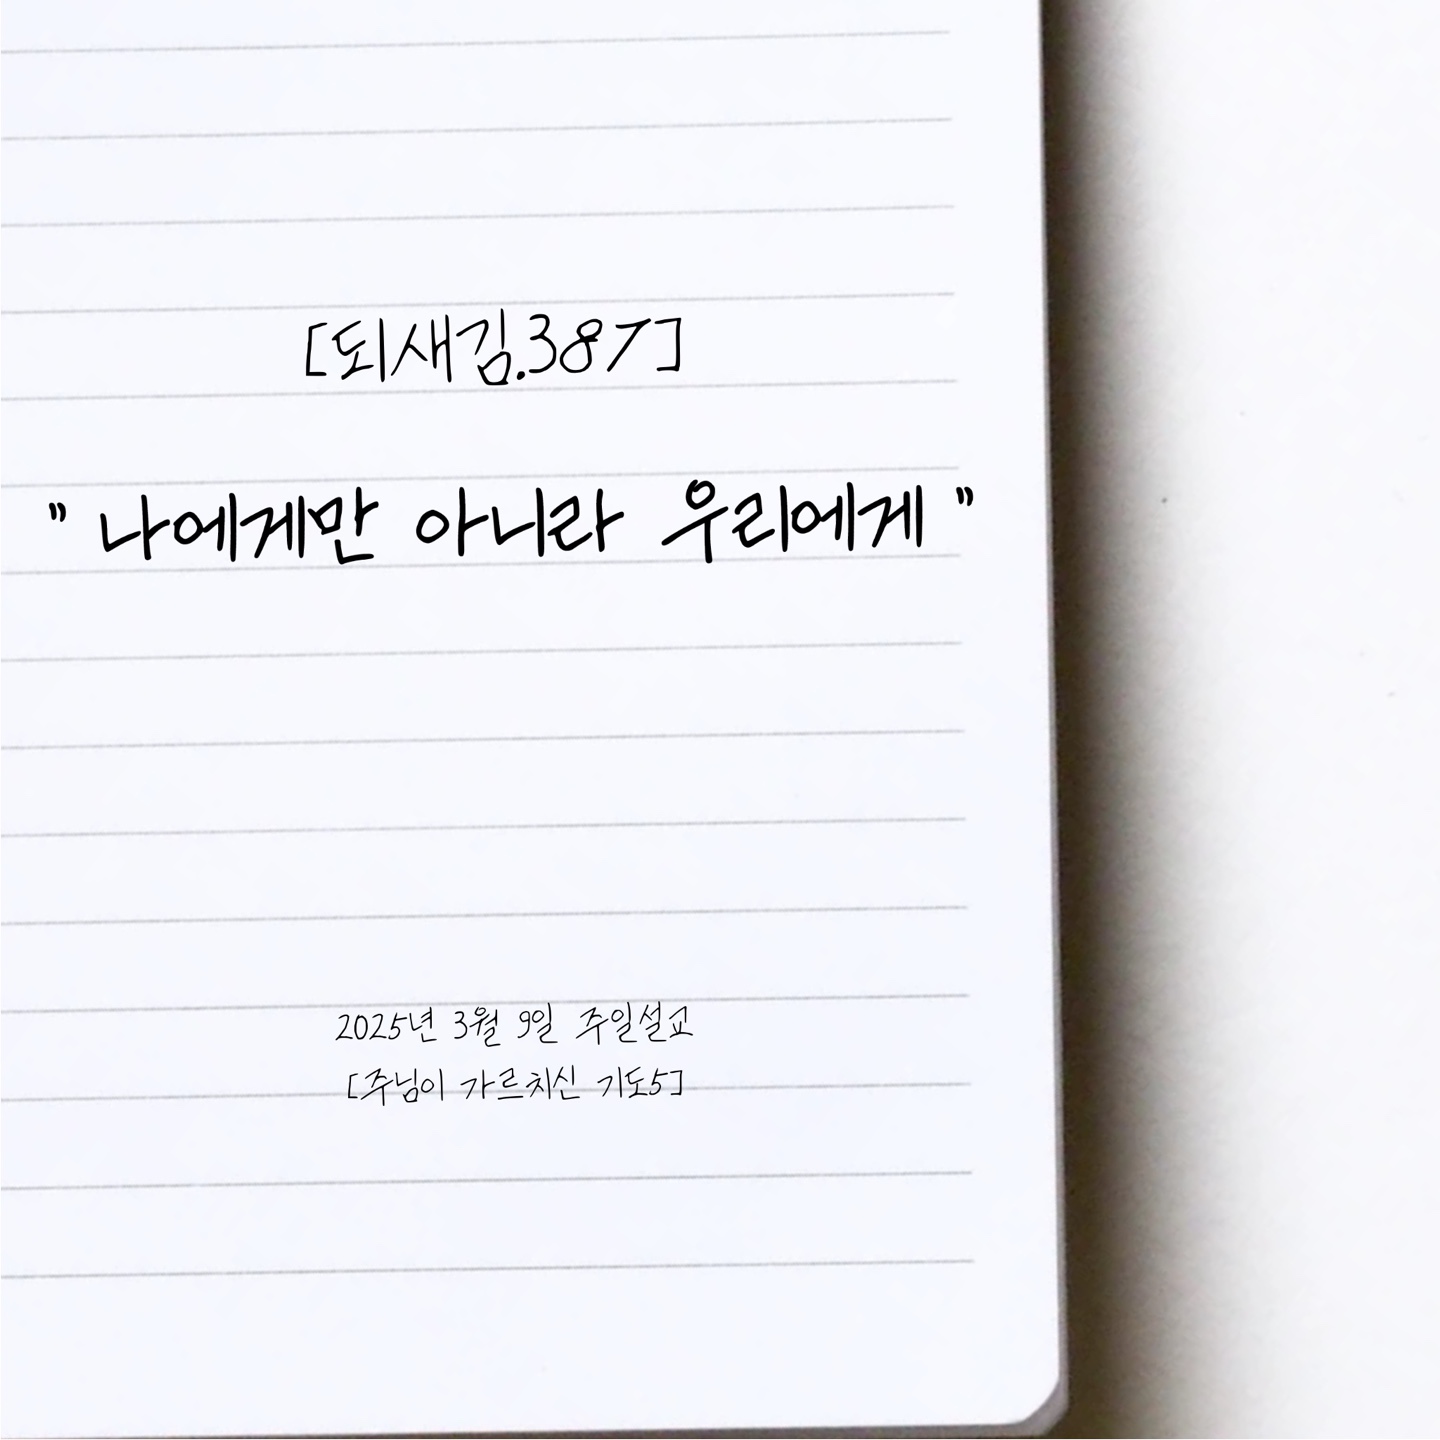 [되새김.387]
" 나에게만 아니라 우리에게 "
2025년 3월 9일 주일설교
[주님이 가르치신 기도5]